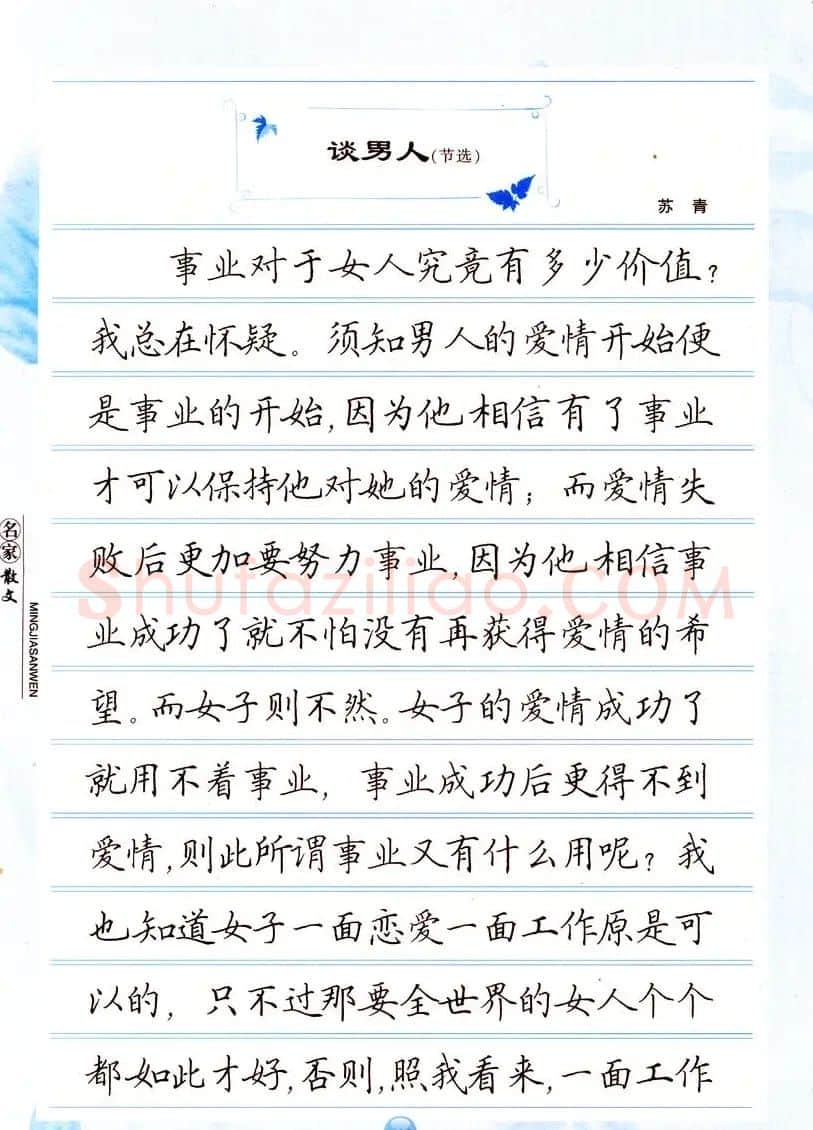 谈男人(节选)
苏 青
事业对于女人究竟有多少价值?
我总在怀疑。须知男人的爱情开始便
是事业的开始,因为他相信有了事业
才可以保持他对她的爱情;而爱情失
败后更加要努力事业,因为他相信事
业成功了就不怕没有再获得爱情的希
望。而女子则不然。女子的爱情成功了
就用不着事业,事业成功后更得不到
爱情,则此所谓事业又有什么用呢?我
也知道女子一面恋爱一面工作原是可
以的,只不过那要全世界的女人个个
都如此才好,否则,照我看来,一面工作
名家散文
MINGJIASANWEN
Shufaziliao.COM